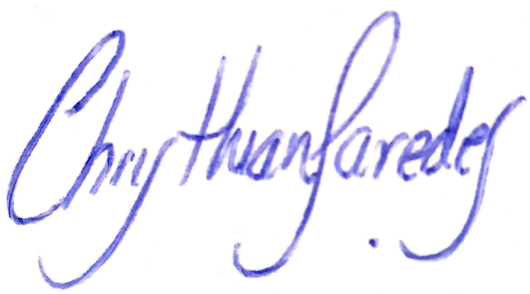 Chrysthian Paredes